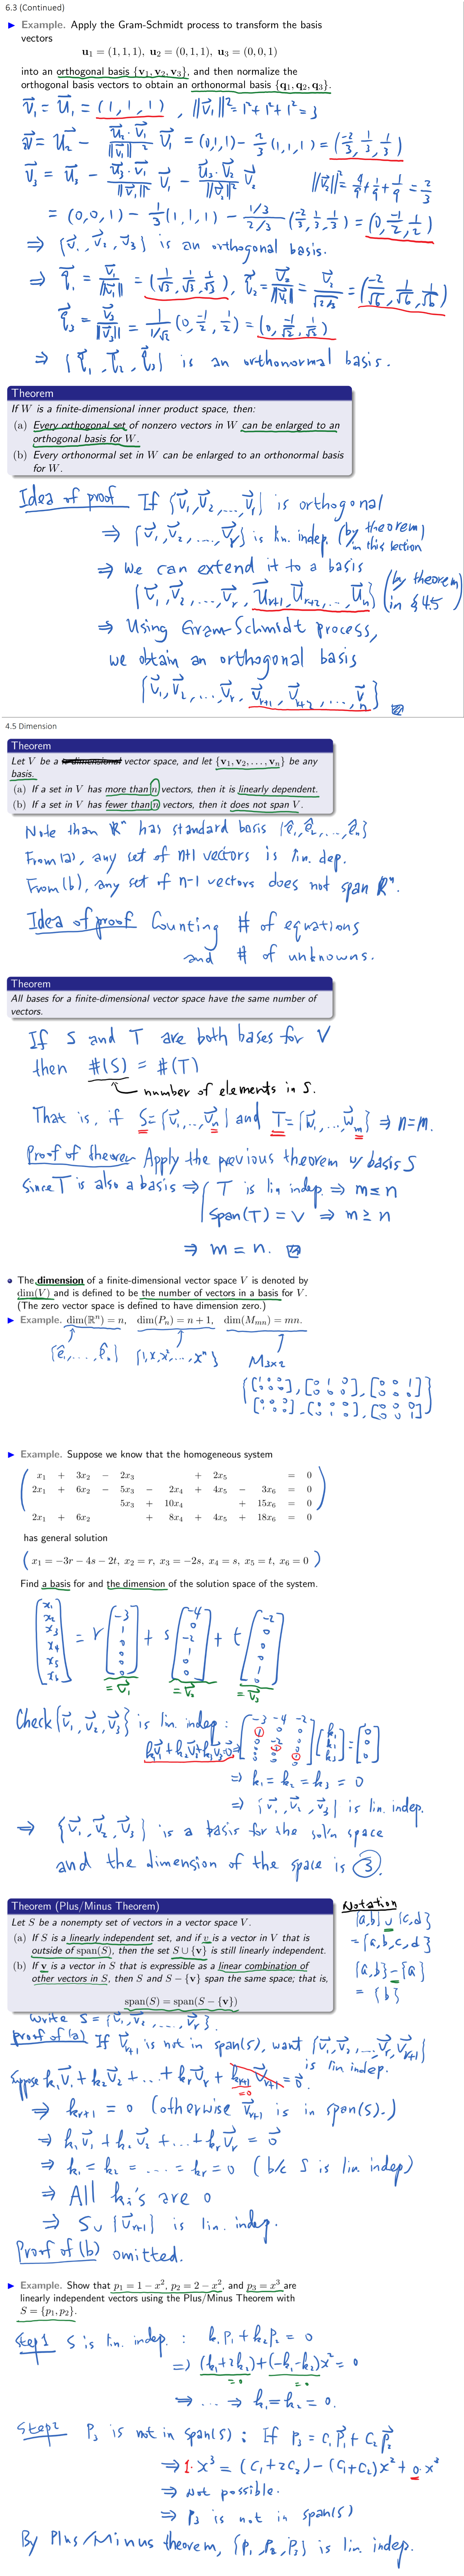 6.3 (Continued)
▶ Example. Apply the Gram-Schmidt process to transform the basis
vectors
u₁ = (1, 1, 1), u₂ = (0, 1, 1), u₃ = (0, 0, 1)
into an orthogonal basis {v₁, v₂, v₃}, and then normalize the
orthogonal basis vectors to obtain an orthonormal basis {q₁, q₂, q₃}.
v⃗₁ = u⃗₁ = (1, 1, 1), ||v⃗₁||² = 1² + 1² + 1² = 3
v⃗ = u⃗₂ − (u⃗₂·v⃗₁)/||v⃗₁||² v⃗₁ = (0,1,1) − 2/3 (1,1,1) = (−2/3, 1/3, 1/3)
v⃗₃ = u⃗₃ − (u⃗₃·v⃗₁)/||v⃗₁||² v⃗₁ − (u⃗₃·v⃗₂)/||v⃗₂||² v⃗₂ ||v⃗₂||² = 4/9 + 1/9 + 1/9 = 2/3
= (0,0,1) − 1/3 (1,1,1) − (1/3)/(2/3) (−2/3, 1/3, 1/3) = (0, −1/2, 1/2)
⇒ {v⃗₁, v⃗₂, v⃗₃} is an orthogonal basis.
⇒ q⃗₁ = v⃗₁/||v⃗₁|| = (1/√3, 1/√3, 1/√3), q⃗₂ = v⃗₂/||v⃗₂|| = v⃗₂/√(2/3) = (−2/√6, 1/√6, 1/√6)
q⃗₃ = v⃗₃/||v⃗₃|| = 1/(1/√2) (0, −1/2, 1/2) = (0, −1/√2, 1/√2)
⇒ {q⃗₁, q⃗₂, q⃗₃} is an orthonormal basis.
Theorem
If W is a finite-dimensional inner product space, then:
(a) Every orthogonal set of nonzero vectors in W can be enlarged to an
orthogonal basis for W.
(b) Every orthonormal set in W can be enlarged to an orthonormal basis
for W.
Idea of proof If {v⃗₁, v⃗₂, ..., v⃗ᵣ} is orthogonal
⇒ {v⃗₁, v⃗₂, ..., v⃗ᵣ} is lin. indep. (by theorem in this section)
⇒ we can extend it to a basis
{v⃗₁, v⃗₂, ..., vᵣ, u⃗ᵣ₊₁, u⃗ᵣ₊₂, ..., u⃗ₙ} (by theorem in §4.5)
⇒ Using Gram-Schmidt process,
we obtain an orthogonal basis
{v⃗₁, v⃗₂, ..., vᵣ, v⃗ᵣ₊₁, v⃗ᵣ₊₂, ..., v⃗ₙ}
4.5 Dimension
Theorem
Let V be a vector space, and let {v₁, v₂, . . . , vₙ} be any
basis.
(a) If a set in V has more than n vectors, then it is linearly dependent.
(b) If a set in V has fewer than n vectors, then it does not span V.
Note than Rⁿ has standard basis {e⃗₁, e⃗₂, ..., e⃗ₙ}
From (a), any set of n+1 vectors is lin. dep.
From (b), any set of n-1 vectors does not span Rⁿ.
Idea of proof Counting # of equations
and # of unknowns.
Theorem
All bases for a finite-dimensional vector space have the same number of
vectors.
If S and T are both bases for V
then #(S) = #(T)
number of elements in S.
That is, if S = {v⃗₁, ..., v⃗ₙ} and T = {w⃗₁, ..., w⃗ₘ} ⇒ n = m.
Proof of theorem Apply the previous theorem w/ basis S
Since T is also a basis ⇒ { T is lin indep. ⇒ m ≤ n
Span(T) = V ⇒ m ≥ n
⇒ m = n.
• The dimension of a finite-dimensional vector space V is denoted by
dim(V) and is defined to be the number of vectors in a basis for V.
(The zero vector space is defined to have dimension zero.)
▶ Example. dim(Rⁿ) = n, dim(Pₙ) = n + 1, dim(Mₘₙ) = mn.
{e⃗₁, ..., e⃗ₙ} {1, x, x², ..., xⁿ} M₃ₓ₂
{[1 0 0; 0 0 0], [0 1 0; 0 0 0], [0 0 1; 0 0 0]
[0 0 0; 1 0 0], [0 0 0; 0 1 0], [0 0 0; 0 0 1]}
▶ Example. Suppose we know that the homogeneous system
x₁ + 3x₂ − 2x₃ + 2x₅ = 0
2x₁ + 6x₂ − 5x₃ − 2x₄ + 4x₅ − 3x₆ = 0
5x₃ + 10x₄ + 15x₆ = 0
2x₁ + 6x₂ + 8x₄ + 4x₅ + 18x₆ = 0
has general solution
(x₁ = −3r − 4s − 2t, x₂ = r, x₃ = −2s, x₄ = s, x₅ = t, x₆ = 0)
Find a basis for and the dimension of the solution space of the system.
[x₁ x₂ x₃ x₄ x₅ x₆] = r [−3 1 0 0 0 0] + s [−4 0 −2 1 0 0] + t [−2 0 0 0 1 0]
= v⃗₁ = v⃗₂ = v⃗₃
Check {v⃗₁, v⃗₂, v⃗₃} is lin. indep: [−3 −4 −2; 1 0 0; 0 −2 0; 0 1 0; 0 0 1; 0 0 0] [k₁ k₂ k₃] = [0 0 0]
k₁v⃗₁ + k₂v⃗₂ + k₃v⃗₃ = 0⃗ ⇒
⇒ k₁ = k₂ = k₃ = 0
⇒ {v⃗₁, v⃗₂, v⃗₃} is lin. indep.
⇒ {v⃗₁, v⃗₂, v⃗₃} is a basis for the sol'n space
and the dimension of the space is 3.
Theorem (Plus/Minus Theorem)
Let S be a nonempty set of vectors in a vector space V.
(a) If S is a linearly independent set, and if v is a vector in V that is
outside of span(S), then the set S ∪ {v} is still linearly independent.
(b) If v is a vector in S that is expressible as a linear combination of
other vectors in S, then S and S − {v} span the same space; that is,
span(S) = span(S − {v})
Notation
{a,b} ∪ {c,d}
= {a, b, c, d}
{a,b} − {a}
= {b}
Write S = {v⃗₁, v⃗₂, ..., v⃗ᵣ}.
proof of (a) If v⃗ᵣ₊₁ is not in span(S), want {v⃗₁, v⃗₂, ..., v⃗ᵣ, v⃗ᵣ₊₁}
is lin indep.
Suppose k₁v⃗₁ + k₂v⃗₂ + ... + kᵣv⃗ᵣ + kᵣ₊₁v⃗ᵣ₊₁ = 0⃗.
=0
⇒ kᵣ₊₁ = 0 (otherwise v⃗ᵣ₊₁ is in span(S).)
⇒ k₁v⃗₁ + k₂v⃗₂ + ... + kᵣv⃗ᵣ = 0⃗
⇒ k₁ = k₂ = ... = kᵣ = 0 (b/c S is lin. indep)
⇒ All kᵢ's are 0
⇒ S ∪ {v⃗ᵣ₊₁} is lin. indep.
Proof of (b) omitted.
▶ Example. Show that p₁ = 1 − x², p₂ = 2 − x², and p₃ = x³ are
linearly independent vectors using the Plus/Minus Theorem with
S = {p₁, p₂}.
Step 1 S is lin. indep. : k₁p₁ + k₂p₂ = 0
⇒ (k₁+2k₂) + (−k₁−k₂)x² = 0
=0 =0
⇒ ... ⇒ k₁ = k₂ = 0.
Step 2 P₃ is not in span(S) : If P₃ = c₁p⃗₁ + c₂p⃗₂
⇒ 1·x³ = (c₁+2c₂) − (c₁+c₂)x² + 0·x³
⇒ not possible.
⇒ P₃ is not in span(S)
By Plus/Minus theorem, {P₁, P₂, P₃} is lin. indep.